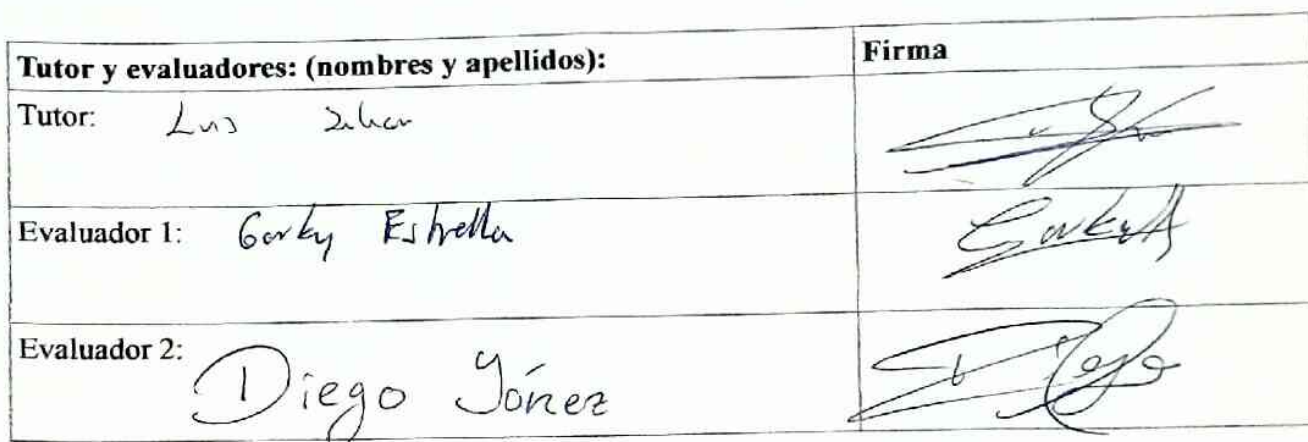 Tutor y evaluadores: (nombres y apellidos):
Firma
Tutor: Luis
Evaluador 1: Gorky Estrella
Evaluador 2: Diego Yánez